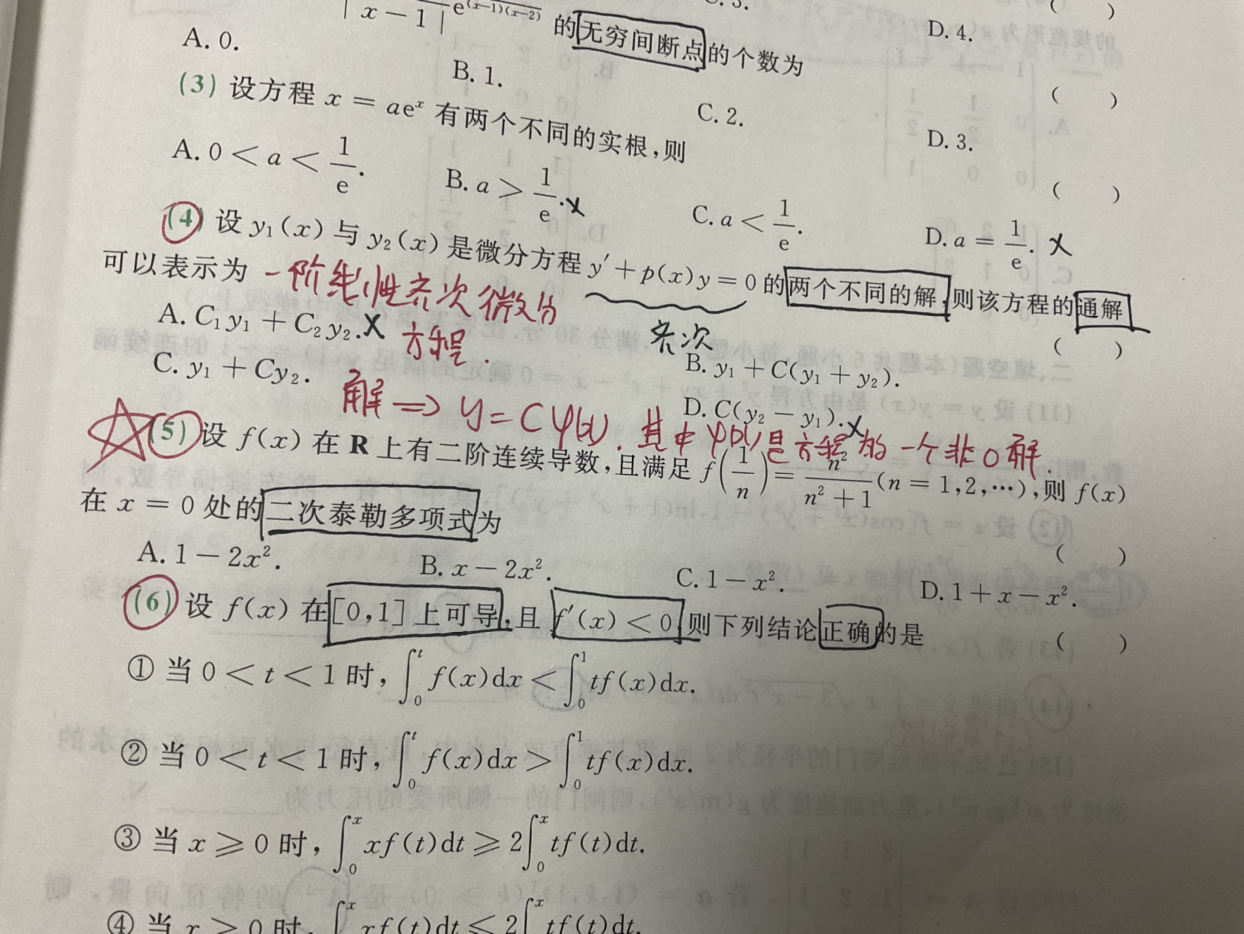 | x − 1 | e^{(x−1)(x−2)} 的无穷间断点的个数为 ( )
D. 4.
A. 0. B. 1. C. 2. D. 3.
(3) 设方程 x = ae^x 有两个不同的实根,则 ( )
A. 0 < a < 1/e. B. a > 1/e. × C. a < 1/e. D. a = 1/e. ×
(4) 设 y₁(x) 与 y₂(x) 是微分方程 y′ + p(x)y = 0 的两个不同的解,则该方程的通解
可以表示为 ( )
一阶线性齐次微分
方程.
齐次
A. C₁y₁ + C₂y₂. × B. y₁ + C(y₁ + y₂).
C. y₁ + Cy₂. D. C(y₂ − y₁). ×
解 ⟹ y = Cφ(x). 其中φ(x)是方程的一个非0解.
(5) 设 f(x) 在 R 上有二阶连续导数,且满足 f(1/n) = n²/(n² + 1) (n = 1,2,…),则 f(x)
在 x = 0 处的二次泰勒多项式为 ( )
A. 1 − 2x². B. x − 2x². C. 1 − x². D. 1 + x − x².
(6) 设 f(x) 在[0,1]上可导,且 f′(x) < 0,则下列结论正确的是 ( )
① 当 0 < t < 1 时, ∫₀ᵗ f(x)dx < ∫₀¹ tf(x)dx.
② 当 0 < t < 1 时, ∫₀ᵗ f(x)dx > ∫₀¹ tf(x)dx.
③ 当 x ⩾ 0 时, ∫₀ˣ xf(t)dt ⩾ 2∫₀ˣ tf(t)dt.
④ 当 x ⩾ 0 时, ∫₀ˣ xf(t)dt ⩽ 2∫₀ˣ tf(t)dt.